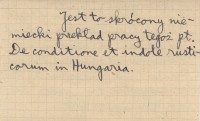 Jest to skrócony nie-
miecki przekład pracy tegoż pt.
De conditione et indole rusti-
corum in Hungaria.